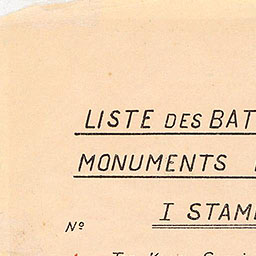 LISTE DES BAT
MONUMENTS
I STAM
Nº